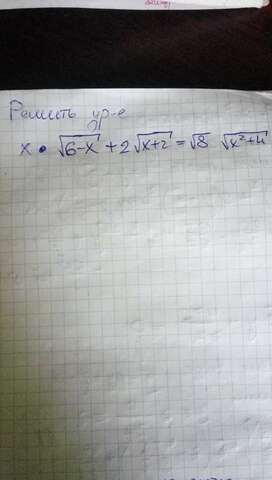 Решить ур-е
x • √6-x + 2√x+2 = √8 √x²+4